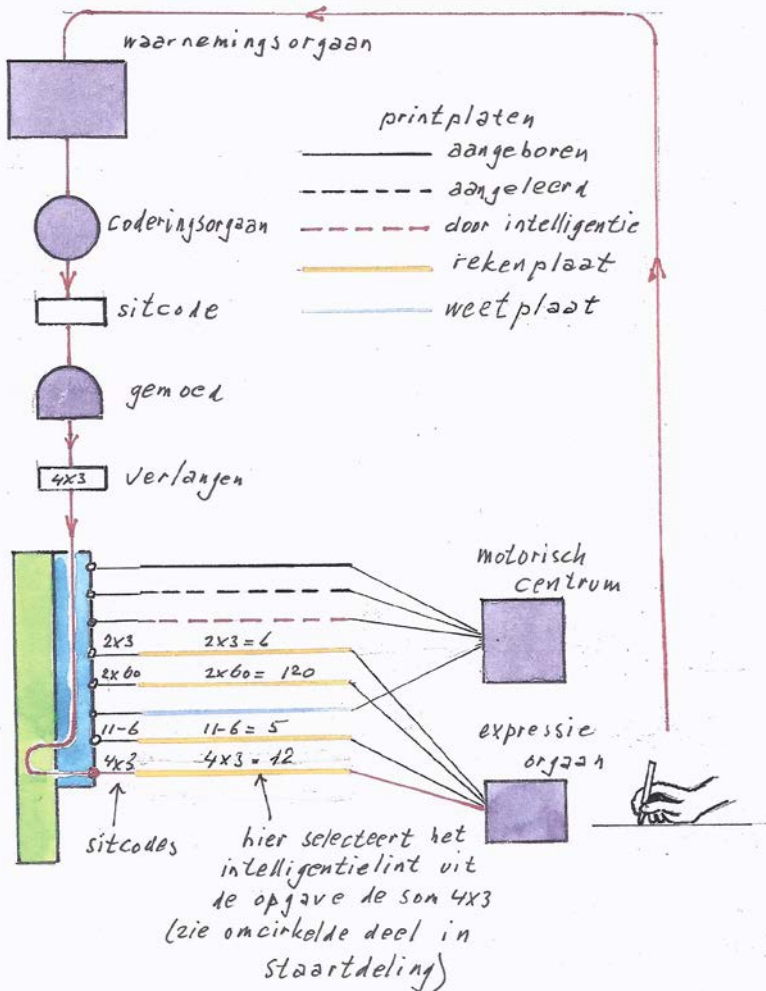 waarnemingsorgaan
printplaten
aangeboren
aangeleerd
door intelligentie
rekenplaat
weetplaat
coderingsorgaan
sitcode
gemoed
4x3
verlangen
motorisch
centrum
2x3 2x3=6
2x60 2x60=120
11-6 11-6=5
4x3 4x3=12
expressie
orgaan
sitcodes
hier selecteert het
intelligentielint uit
de opgave de som 4x3
(zie omcirkelde deel in
staartdeling)